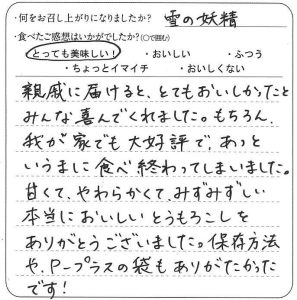 ・何をお召し上がりになりましたか? 雪の妖精
・食べたご感想はいかがでしたか?(○で囲む)
とっても美味しい! ・おいしい ・ふつう
・ちょっとイマイチ ・おいしくない
親戚に届けると、とてもおいしかったと
みんな喜んでくれました。もちろん、
我が家でも大好評で、あっと
いうまに食べ終わってしまいました。
甘くて、やわらかくて、みずみずしい
本当においしいとうもろこしを
ありがとうございました。保存方法
や、P-プラスの袋もありがたかった
です!